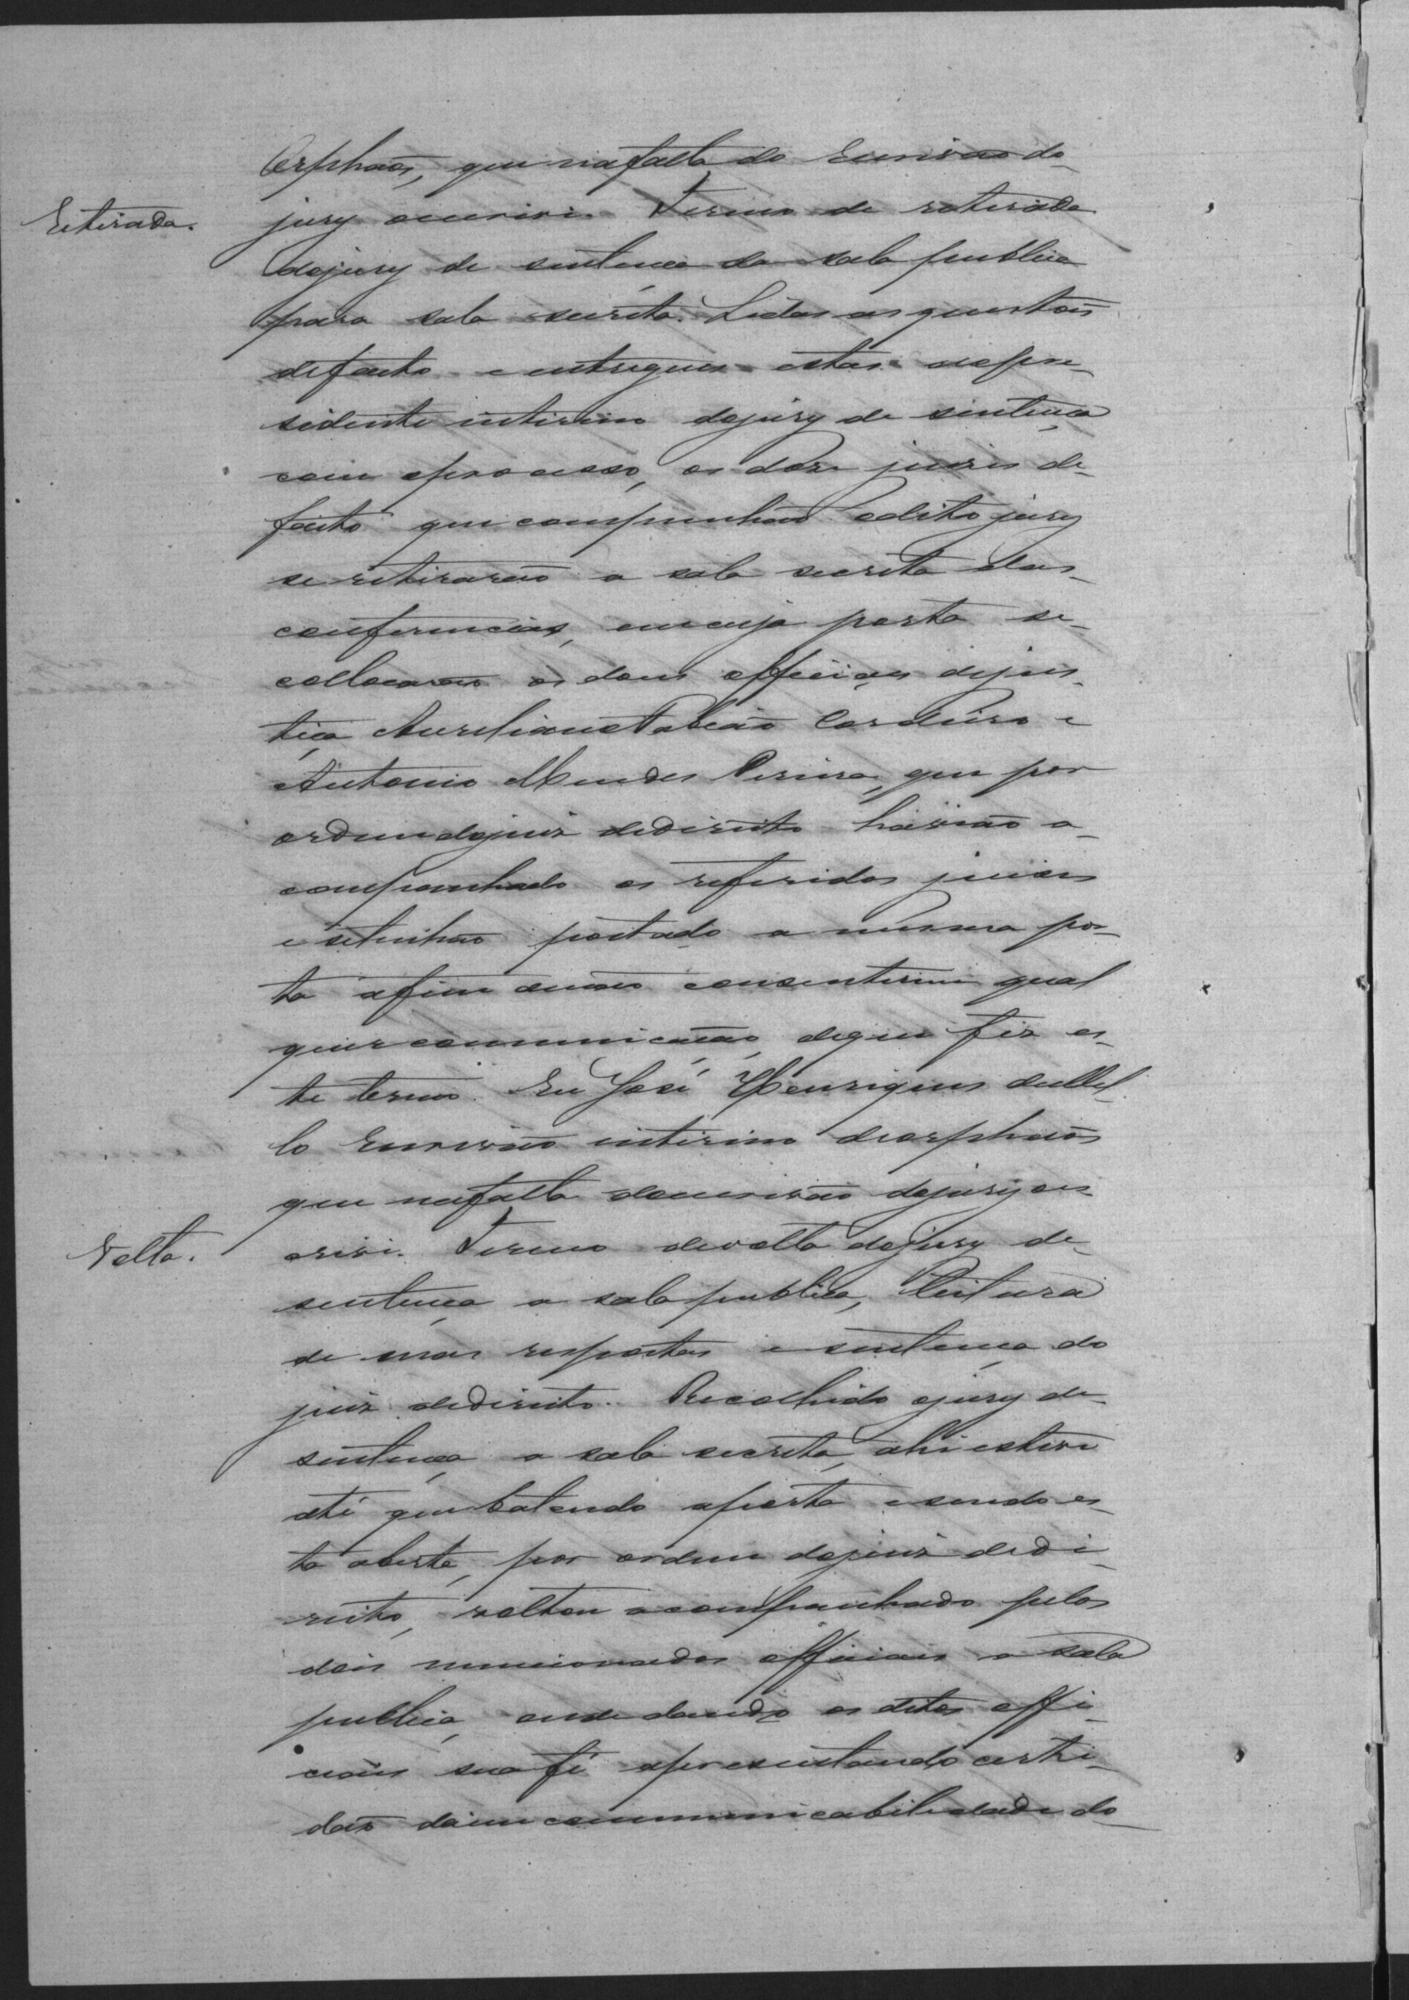 Orphaõs, que na falta do Escrivão do
Retirada.
jury escrivi. Termo de retirada
do jury de sentença da sala publica
para sala secréta. Lidas as questões
de facto e entregues estas ao pre-
sidente interino do jury de sentença
com o processo, os doze juizes de
facto que compunhão o dito jury
se retirarão a sala secreta das
conferencias, em cuja porta se
collocarão os dous officiaes de jus-
tiça Aureliano Cordeiro e
Antonio Mendes Pereira, que por
ordem do juiz de direito havião a-
companhado os referidos juizes
e se tinhão postado a mesma por-
ta afim de não consentirem qual
quer communicação, de que fiz es-
te termo. Eu José Henriques de Mel-
lo Escrivão interino de orphaõs
que na falta do escrivão do jury es-
Volta.
crivi. Termo de volta do jury de
sentença a sala publica, leitura
de suas respostas e sentença do
juiz de direito. Recolhido o jury de
sentença a sala secréta, ahi esteve
até que batendo a porta e sendo es-
ta aberta, por ordem do juiz de di-
reito, voltou acompanhado pelos
dois mencionados officiais a sala
publica, onde dando os ditos offi-
ciais sua fé apresentando certi-
dão da incommunicabilidade do